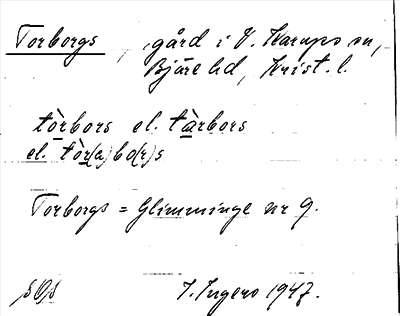 Torborgs, gård i V. Karups sn,
Bjäre hd, Krist. l.
tòrbors el. tàrbors
el. tòr(a)bo(r)s
Torborgs = Glimminge nr 9.
SOS I. Ingers 1947.